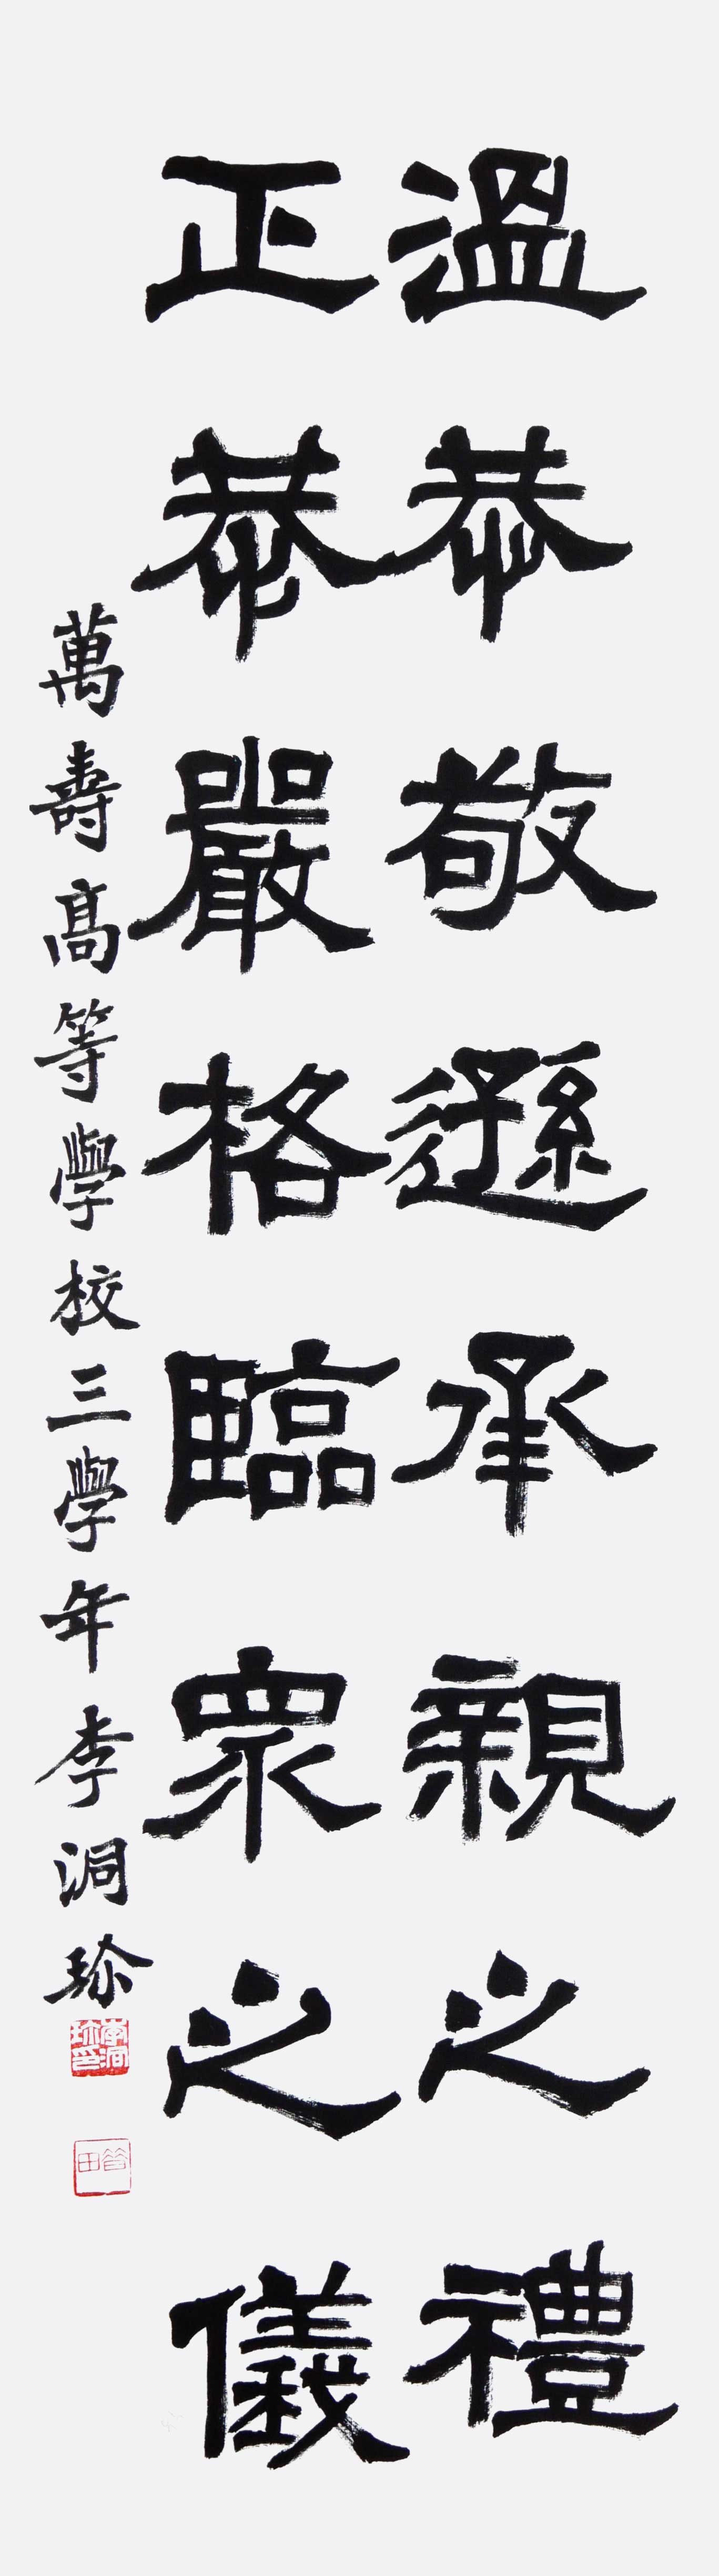 溫恭敬遜承親之禮
正恭嚴格臨衆之儀
萬壽高等學校三學年李洞珎